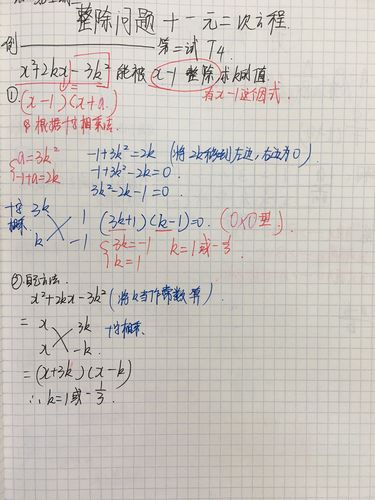 整除问题+一元二次方程.
例 第二试 T4.
x²+2kx-3k² 能被 x-1 整除求k的值.
① (x-1)(x+a.) 有x-1这个因式.
根据十字相乘法.
{a=3k² -1+3k²=2k (将2k移到左边,右边为0)
-1+a=2k -1+3k²-2k=0.
3k²-2k-1=0.
十字相乘 3k 1 (3k+1)(k-1)=0. (0×0型.)
k -1 {3k=-1 k=1或-1/3.
k=1
② 方法.
x²+2kx-3k² (将k当作常数算)
= x 3k 十字相乘.
x -k.
=(x+3k)(x-k)
∴k=1或-1/3.